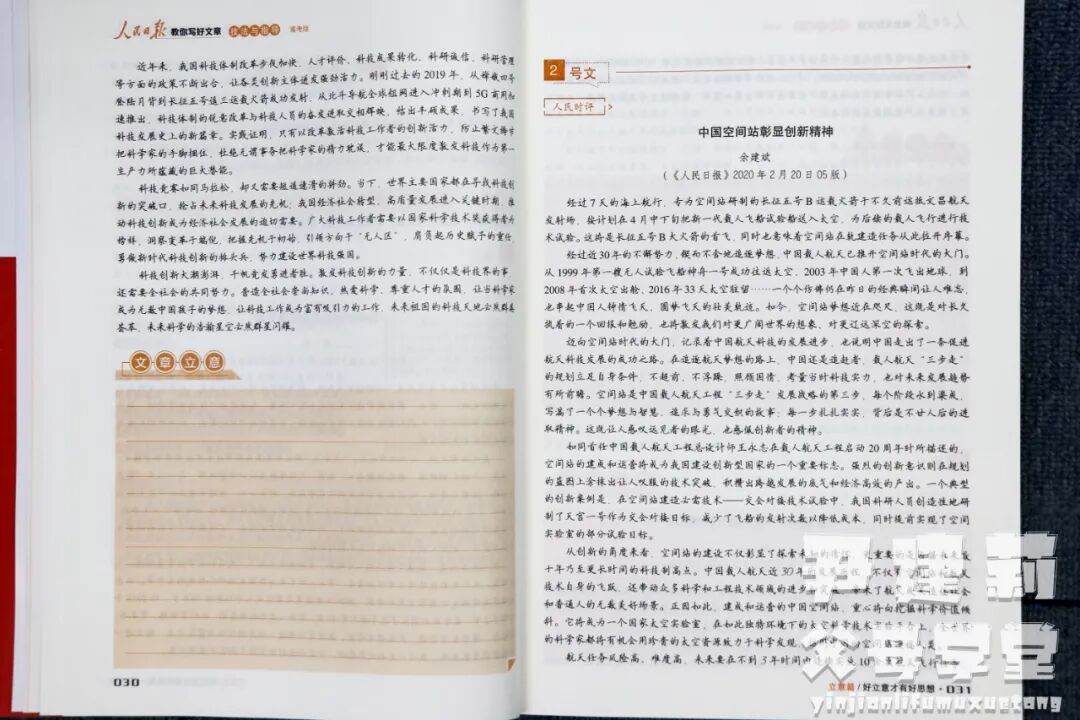 人民日报 教你写好文章 技法与指导 高考版
近年来，我国科技体制改革步伐加快，人才评价、科技成果转化、科研诚信、科研管理
等方面的政策不断出台，让各类创新主体迸发强劲活力。刚刚过去的 2019 年，从嫦娥四号
登陆月背到长征五号遥三运载火箭成功发射，从北斗导航全球组网进入冲刺期到 5G 商用加
速推出，科技体制的锐意改革与科技人员的奋发进取交相辉映，结出丰硕成果，书写了我国
科技发展史上的新篇章。实践证明，只有以改革激活科技工作者的创新活力，防止繁文缛节
把科学家的手脚捆住，杜绝无谓事务把科学家的精力耽误，才能最大限度激发科技作为第一
生产力所蕴藏的巨大潜能。
科技竞赛如同马拉松，却又需要短道速滑的拼劲。当下，世界主要国家都在寻找科技创
新的突破口，抢占未来科技发展的先机；我国经济社会转型、高质量发展进入关键时期，推
动科技创新成为经济社会发展的迫切需要。广大科技工作者需要以国家科学技术奖获得者为
榜样，洞察变革于端倪，把握先机于初始，引领方向于“无人区”，肩负起历史赋予的重任，
勇做新时代科技创新的排头兵，努力建设世界科技强国。
科技创新大潮澎湃，千帆竞发勇进者胜。激发科技创新的力量，不仅仅是科技界的事，
还需要全社会的共同努力。营造全社会崇尚知识、热爱科学、尊重人才的氛围，让当科学家
成为无数中国孩子的梦想，让科技工作成为富有吸引力的工作，未来祖国的科技天地必然群英
荟萃，未来科学的浩瀚星空必然群星闪耀。
文章立意
030
2 号文
人民时评
中国空间站彰显创新精神
余建斌
（《人民日报》2020 年 2 月 20 日 05 版）
经过 7 天的海上航行，专为空间站研制的长征五号 B 运载火箭于不久前运抵文昌航天
发射场，按计划在 4 月中下旬把新一代载人飞船试验船送入太空，为后续的载人飞行进行技
术试验。这将是长征五号 B 大火箭的首飞，同时也意味着空间站在轨建造任务从此拉开序幕。
经过近 30 年的不懈努力，锲而不舍地追逐梦想，中国载人航天已推开空间站时代的大门。
从 1999 年第一艘无人试验飞船神舟一号成功往返太空、2003 年中国人第一次飞出地球，到
2008 年首次太空出舱、2016 年 33 天太空驻留……一个个仿佛仍在昨日的经典瞬间让人难忘，
也串起中国人钟情飞天、圆梦飞天的壮美航迹。如今，空间站梦想近在咫尺，这既是对长久
执着的一个回报和勉励，也将激发我们对更广阔世界的想象、对更辽远深空的探索。
迈向空间站时代的大门，记录着中国航天科技的发展进步，也说明中国走出了一条促进
航天科技发展的成功之路。在追逐航天梦想的路上，中国还是追赶者，载人航天“三步走”
的规划立足自身条件，不超前、不浮躁，照顾国情，考量当时科技实力，也对未来发展趋势
有所前瞻。空间站是中国载人航天工程“三步走”发展战略的第三步，每个阶段水到渠成，
写满了一个个梦想与智慧、追求与勇气交织的故事；每一步扎扎实实，背后是不甘人后的进
取精神。这既让人感叹远见者的眼光，也感佩创新者的精神。
如同首任中国载人航天工程总设计师王永志在载人航天工程启动 20 周年时所描述的，
空间站的建成和运营将成为我国建设创新型国家的一个重要标志。强烈的创新意识则在规划
的蓝图上涂抹出让人叹服的技术突破，积攒出跨越发展的底气和经济高效的产出。一个典型
的创新案例是，在空间站建造必需技术——交会对接技术试验中，我国科研人员创造性地研
制了天宫一号作为交会对接目标，减少了飞船的发射次数以降低成本，同时提前实现了空间
实验室的部分试验目标。
从创新的角度来看，空间站的建设不仅彰显了探索未知的情怀，更重要的是
十年乃至更长时间的科技制高点。中国载人航天近 30 年的发展历程，不仅
技术自身的飞跃，还带动众多科学和工程技术领域的进步
和普通人的无数美好场景。正因如此，建成和运营的中国空间站，重心将向挖掘科学价值倾
斜。它将成为一个国家太空实验室，在如此独特环境下的太空科学技术
的科学家都将有机会用珍贵的太空资源致力于科学发现
航天任务风险高、难度高，未来要在不到 3 年时间内
立意篇 / 好立意才有好思想 · 031
尹建莉
父母学堂
yinjianlifumuxuetang